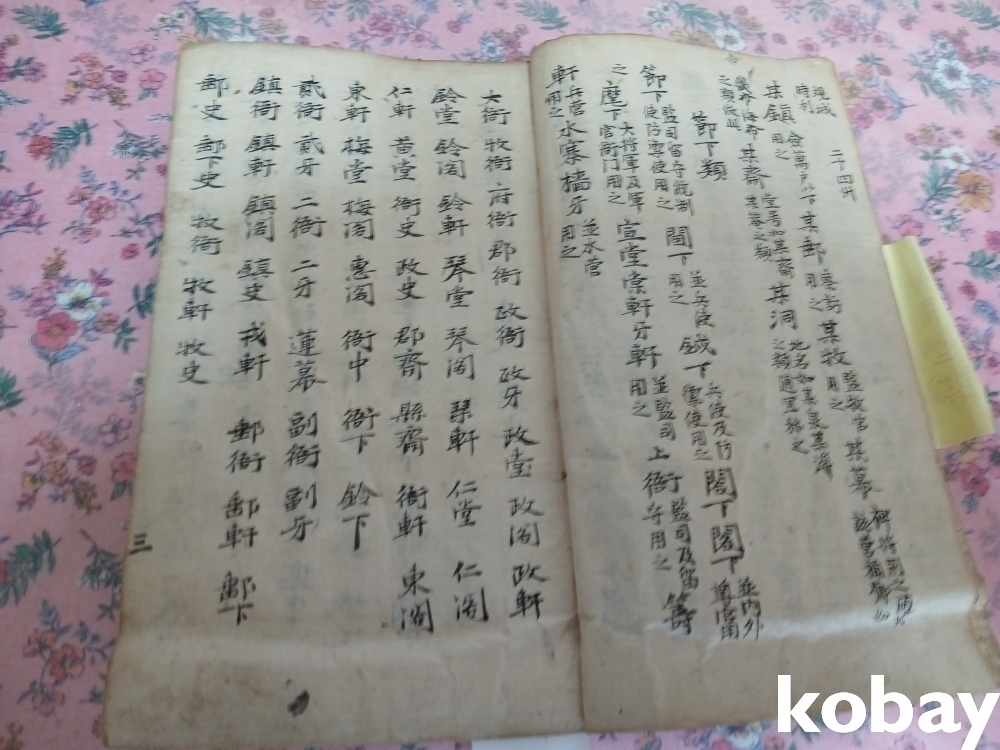 城
時利
二十四州
某鎮 僉萬戶以下用之 某郵 察訪用之 某牧 監牧官用之 某幕 裨將用之
之類 某齋 堂号如某齋某菴之類 某洞 地名如某泉某澤之類通里称之
節下類
節下 監司留守統制使防禦使用之 閤下 並兵使用之 鉞下 兵使及防禦使用之 閤下閣下 並內外尊官用
之 麾下 大將軍及軍官衙門用之 宣堂棠軒牙軒 並監司用之 上衙 監司及留守用之 籌
軒 兵營用之 水寨檣牙 並水營用之
大衙 牧衙 府衙 郡衙 政衙 政牙 政堂 政閣 政軒
鈴堂 鈴閣 鈴軒 琴堂 琴閣 琴軒 仁堂 仁閣
仁軒 黃堂 衙史 政史 郡齋 縣齋 衙軒 東閣
東軒 梅堂 梅閣 惠閣 衙中 衙下 鈴下
貳衙 貳牙 二衙 二牙 蓮幕 副衙 副牙
鎮衙 鎮軒 鎮閣 鎮史 戎軒 郵衙 郵軒 郵下
郵史 郵下史 牧衙 牧軒 牧史
三
kobay